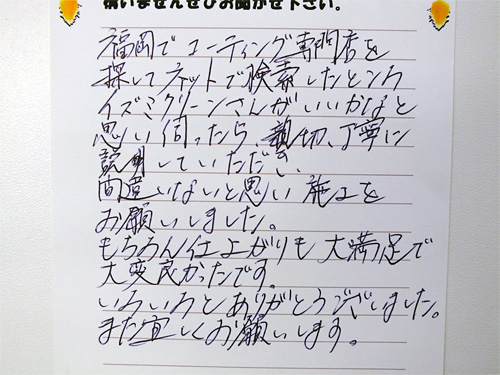 構いませんぜひお聞かせ下さい。
福岡でコーティング専門店を
探してネットで検索したところ
イズミクリーンさんがいいかなと
思い伺ったら、親切、丁寧に
説明していただき、
間違いないと思い施工を
お願いしました。
もちろん仕上がりも大満足で
大変良かったです。
いろいろとありがとうございました。
また宜しくお願いします。